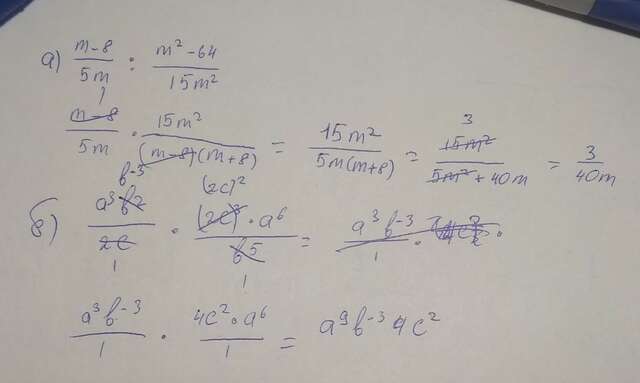 а) (m-8)/(5m) : (m² - 64)/(15m²)
(m-8)/(5m) · 15m²/((m-8)(m+8)) = 15m²/(5m(m+8)) = 15m²/(5m² + 40m) = 3/(40m)
б) a³b²/(2c) · (2c)³ · a⁶/b⁵ = a³b⁻³/1 ·
a³b⁻³/1 · 4c² · a⁶/1 = a⁹b⁻³4c²